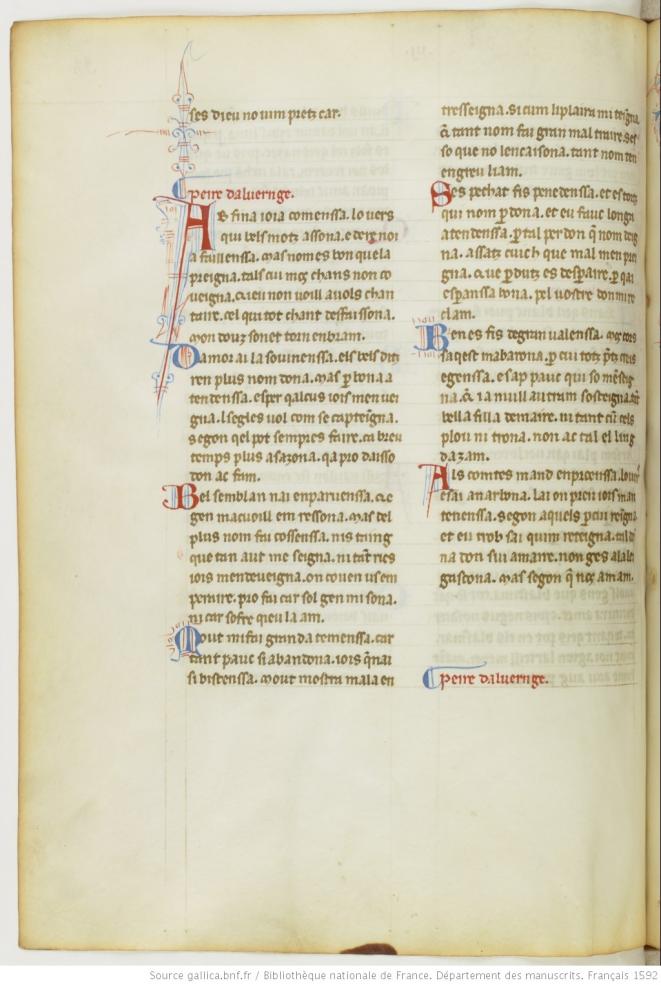 ses dieu no uim pretz car.
peire daluernge.
Ab fina ioia comenssa. lo uers
qui bels motz assona. e de re noi
a faillenssa. mas nom es bon que la
preigna. tals cui mos chans non co
ueigna. q̃ ieu non uoill auols chan
taire. cel qui tot chant desfaissona.
mon douz sonet torn en bram.
Damor ai la souinenssa. els bels ditz
ren plus nom dona. mas ꝑ bona a
tendenssa. esper qalcus iois men ue
gna. l segles uol com se capteigna.
segon qel pot sempres faire. ca breu
temps plus asazona. qa pro daisso
don ac fam.
Bel semblan nai en paruenssa. q̃
gen macuoill em ressona. mas del
plus nom fai cossenssa. nis taing
que tan aut me seigna. ni tãt rics
iois mendeueigna. on couen us em
peraire. pro fai car sol gen mi sona.
ni car sofre qieu la am.
Mout mi fai gran da temenssa. car
tant pauc si abandona. iors q̃ nai
si bistenssa. mout mostra mala en
tresseigna. si cum li plaira mi teigna
q̃ tant nom fai gran mal traire. des
so que no lencaisona. tant nom ten
en greu liam.
Ses pechat fis penedenssa. et es tortz
qui nom ꝑdona. et eu fauc longa
atendenssa. ꝑ tal perdon q̃ nom deig
na. assatz cuich que mal men prei
gna. q̃ ue ꝑdutz es desꝑaire. ꝑ qai
esꝑanssa bona. pel uostre don mire
clam.
Ben es fis de gran ualenssa. mos cors
sa qest mabandona. ꝑ cui totz
egenssa. e sap pauc qui so
na. q̃ ia nuill autram sosteigna.
bella filla de maire. ni tant cũ cels
plou ni trona. non ac tal el ling
dazam.
Als comtes mand en proenssa. lo uers
e sai a narbona. lai on pren iois man
tenenssa. segon aquels ꝑ cui reigna
et eu trob sai quim reteigna. tal do
na don sui amaire. non ges a la lei
gascona. mas segon q̃ nos amam.
peire daluernge.
Source gallica.bnf.fr / Bibliothèque nationale de France. Département des manuscrits. Français 1592